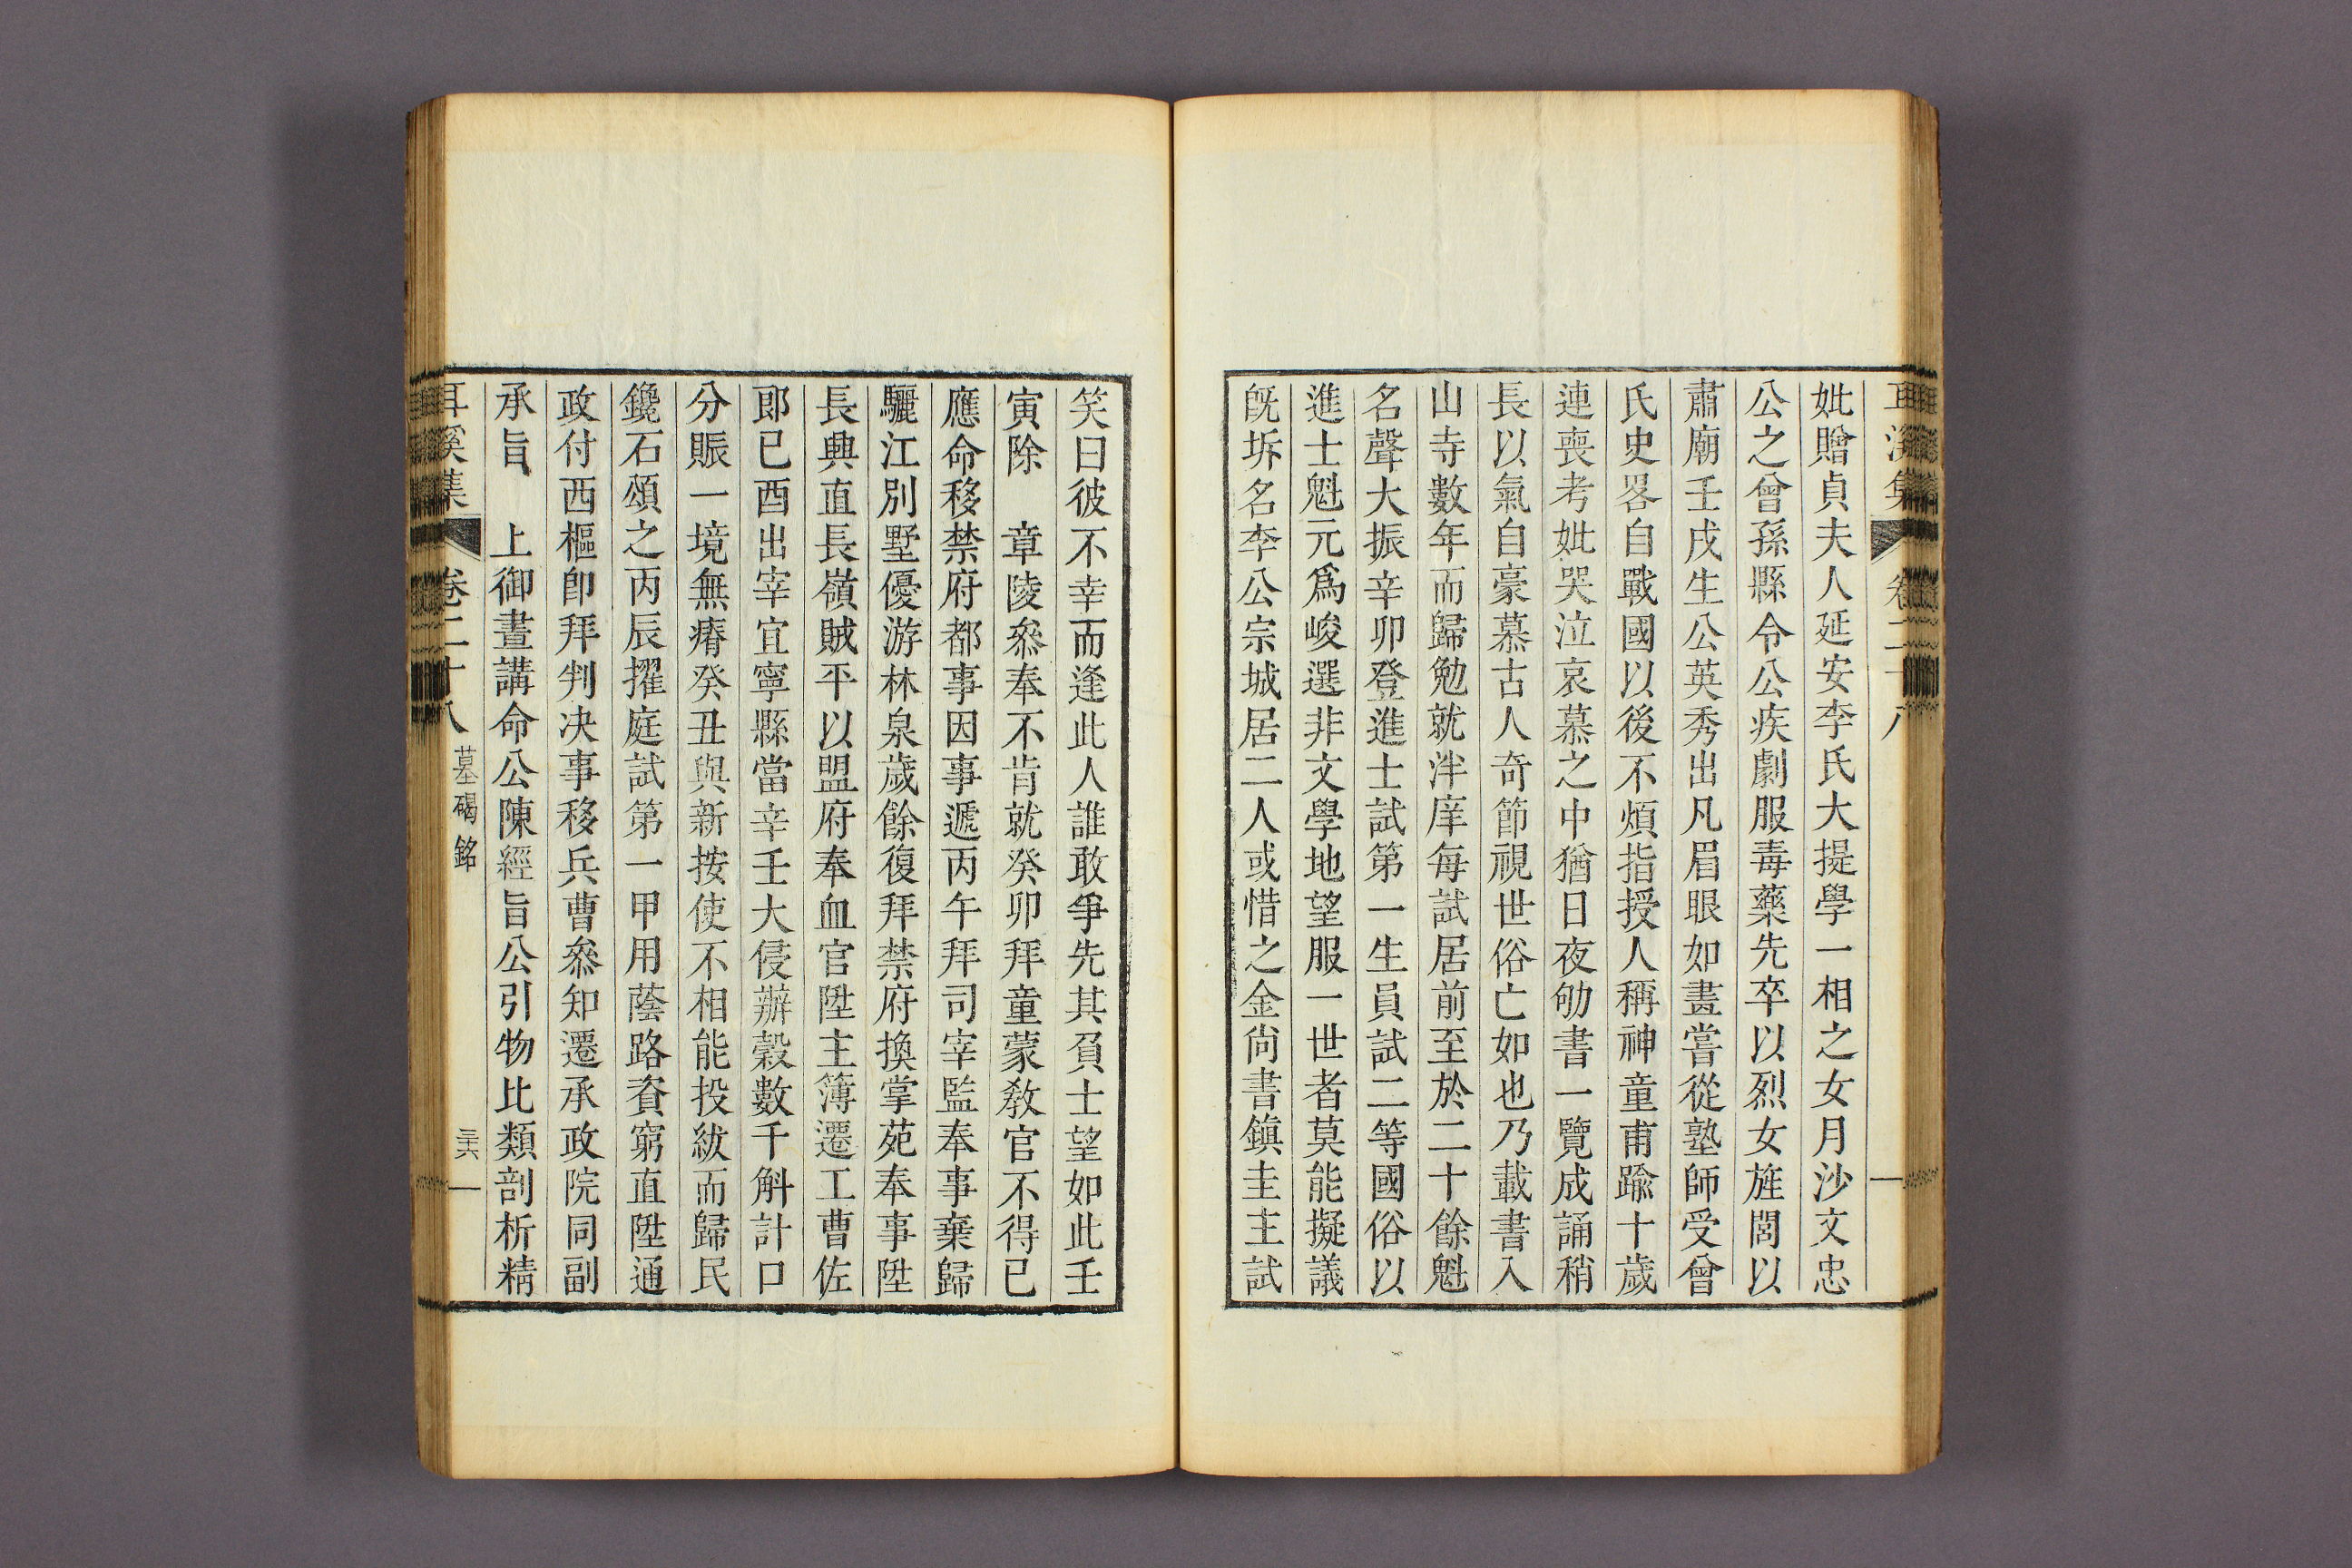 妣贈貞夫人延安李氏大提學一相之女月沙文忠
公之曾孫縣令公疾劇服毒藥先卒以烈女旌閭以
肅廟壬戌生公英秀出凡眉眼如畫嘗從塾師受曾
氏史畧自戰國以後不煩指授人稱神童甫踰十歲
連喪考妣哭泣哀慕之中猶日夜劬書一覽成誦稍
長以氣自豪慕古人奇節視世俗亡如也乃載書入
山寺數年而歸勉就泮庠每試居前至於二十餘魁
名聲大振辛卯登進士試第一生員試二等國俗以
進士魁元爲峻選非文學地望服一世者莫能擬議
旣坼名李公宗城居二人或惜之金尙書鎭圭主試
笑曰彼不幸而逢此人誰敢爭先其負士望如此壬
寅除 章陵叅奉不肯就癸卯拜童蒙敎官不得已
應命移禁府都事因事遞丙午拜司宰監奉事棄歸
驪江別墅優游林泉歲餘復拜禁府換掌苑奉事陞
長興直長嶺賊平以盟府奉血官陞主簿遷工曹佐
郞已酉出宰宜寧縣當辛壬大侵辦穀數千斛計口
分賑一境無瘠癸丑與新按使不相能投紱而歸民
鑱石頌之丙辰擢庭試第一甲用蔭路資窮直陞通
政付西樞卽拜判决事移兵曹叅知遷承政院同副
承旨 上御晝講命公陳經旨公引物比類剖析精
耳溪集 卷二十八 墓碣銘 三六